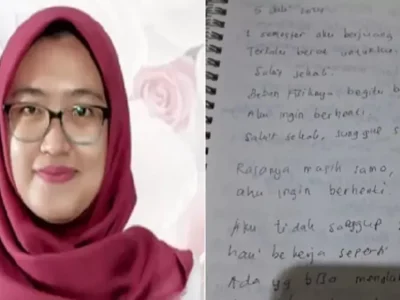 1 semester aku berjuang
Terlalu berat untukku.
Sakit sekali.
Beban fisiknya begitu b
Aku ingin berhenti.
Sakit sekali, sungguh s
Rasanya masih sama,
aku ingin berhenti.
Aku tidak sanggup
hari bekerja seperti
Ada yg bisa